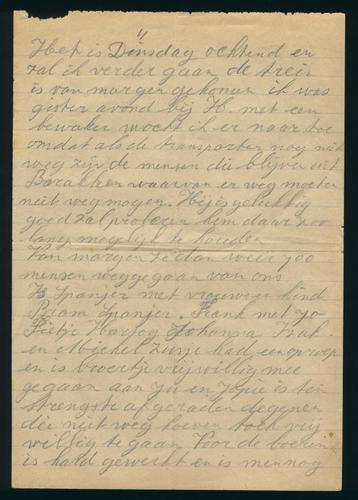 Het is Dinsdag ochtend en
zal ik verder gaan de trein
is van morgen gekomen ik was
gister avond bij H. met een
bewaker mocht ik er naar toe
omdat als de transporten nog niet
weg zijn de mensen die blijven uit
Barakken waarvan er weg moeten
niet weg mogen. Hij is gelukkig
goed zal proberen hem daar zoo
lang mogelijk te houden
Van morgen ze dan weer 700
mensen weggegaan van ons
Is Spanjer met vrouw en kind
Bram Spanjer. Frank met Jo
Pietje Hertog Johanna Isak
en Michel Zusje had een oproep
en is broertje vrijwillig mee
gegaan aan Ju en Jopie is ten
strengste afgeraden degenen
die niet weg hoeven toch vrij
willig te gaan Voor de boeren
is hard gewerkt en is men nog